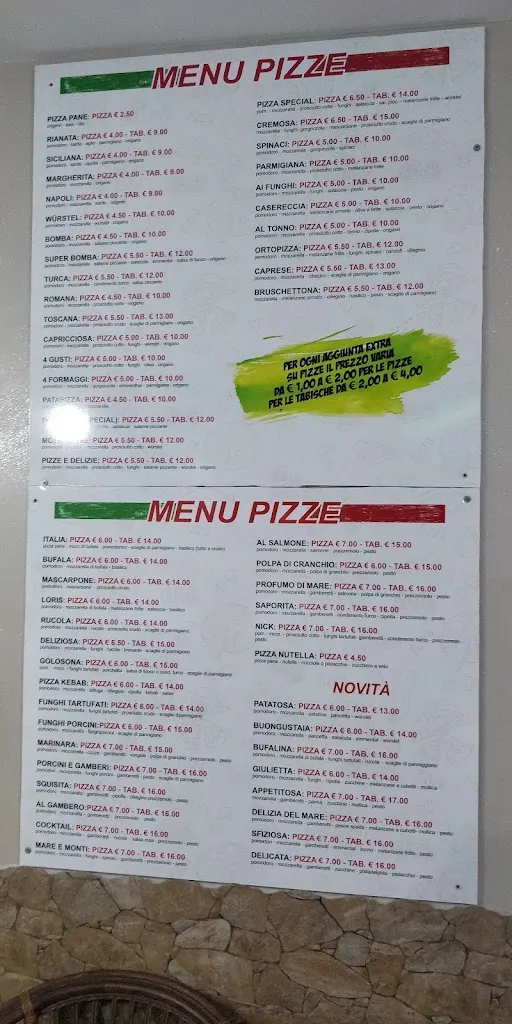 MENU PIZZE
PIZZA PANE: PIZZA € 2.50
origano - sale - olio
RIANATA: PIZZA € 4.00 - TAB. € 9.00
pomodoro - sarde - aglio - parmigiano - origano
SICILIANA: PIZZA € 4.00 - TAB. € 9.00
pomodoro - sarde - cipolla - parmigiano - origano
MARGHERITA: PIZZA € 4.00 - TAB. € 9.00
pomodoro - mozzarella - origano
NAPOLI: PIZZA € 4.00 - TAB. € 9.00
pomodoro - mozzarella - sarde - origano
WÜRSTEL: PIZZA € 4.50 - TAB. € 10.00
pomodoro - mozzarella - würstel - origano
BOMBA: PIZZA € 4.50 - TAB. € 10.00
pomodoro - mozzarella - salame piccante - origano
SUPER BOMBA: PIZZA € 5.50 - TAB. € 12.00
pomodoro - mozzarella - salame piccante - salsiccia - emmental - salsa di fuoco - origano
TURCA: PIZZA € 5.50 - TAB. € 12.00
pomodoro - mozzarella - condimento turco - salsa piccante
ROMANA: PIZZA € 4.50 - TAB. € 10.00
pomodoro - mozzarella - prosciutto cotto - origano
TOSCANA: PIZZA € 5.50 - TAB. € 13.00
pomodoro - mozzarella - prosciutto crudo - scaglie di parmigiano - origano
CAPRICCIOSA: PIZZA € 5.00 - TAB. € 10.00
pomodoro - mozzarella - prosciutto cotto - funghi - würstel - origano
4 GUSTI: PIZZA € 5.00 - TAB. € 10.00
pomodoro - mozzarella - prosciutto cotto - funghi - olive - origano
4 FORMAGGI: PIZZA € 5.00 - TAB. € 10.00
pomodoro - mozzarella - gorgonzola - emmenthal - parmigiano - origano
PIZZA € 4.50 - TAB. € 10.00
PIZZA € 5.50 - TAB. € 12.00
salsiccia - salame piccante
PIZZA € 5.50 - TAB. € 12.00
mozzarella - prosciutto cotto - funghi - würstel
PIZZE E DELIZIE: PIZZA € 5.50 - TAB. € 12.00
pomodoro - mozzarella - prosciutto cotto - funghi - salame piccante - würstel - origano
PIZZA SPECIAL: PIZZA € 6.50 - TAB. € 14.00
pom. - mozzarella - prosciutto cotto - funghi - salsiccia - sal. picc. - melanzane fritte - würstel
CREMOSA: PIZZA € 6.50 - TAB. € 15.00
mozzarella - funghi - gorgonzola - mascarpone - prosciutto crudo - scaglie di parmigiano
SPINACI: PIZZA € 5.00 - TAB. € 10.00
pomodoro - mozzarella - gorgonzola - spinaci
PARMIGIANA: PIZZA € 5.00 - TAB. € 10.00
pomodoro - mozzarella - prosciutto cotto - melanzane fritte
AI FUNGHI: PIZZA € 5.00 - TAB. € 10.00
pomodoro - mozzarella - funghi - salsiccia - pesto - origano
CASERECCIA: PIZZA € 5.00 - TAB. € 10.00
pomodoro - mozzarella - melanzane arrosto - olive a fette - salsiccia - pesto - origano
AL TONNO: PIZZA € 5.00 - TAB. € 10.00
pomodoro - mozzarella - prosciutto cotto - tonno - cipolla - origano
ORTOPIZZA: PIZZA € 5.50 - TAB. € 12.00
pomodoro - mozzarella - melanzane fritte - funghi - spinaci - carciofi - ciliegino
CAPRESE: PIZZA € 5.50 - TAB. € 13.00
pomodoro - mozzarella - ciliegino - scaglie di parmigiano - origano
BRUSCHETTONA: PIZZA € 5.50 - TAB. € 12.00
mozzarella - melanzane arrosto - ciliegino - basilico - pesto - scaglie di parmigiano
PER OGNI AGGIUNTA EXTRA
SU PIZZE IL PREZZO VARIA
DA € 1,00 A € 2,00 PER LE PIZZE
PER LE TABISCHE DA € 2,00 A € 4,00
MENU PIZZE
ITALIA: PIZZA € 6.00 - TAB. € 14.00
pizza pane - mozz. di bufala - pomodorino - scaglie di parmigiano - basilico (tutto a crudo)
BUFALA: PIZZA € 6.00 - TAB. € 14.00
pomodoro - mozzarella di bufala - basilico
MASCARPONE: PIZZA € 6.00 - TAB. € 14.00
pomodoro - mascarpone - prosciutto crudo
LORIS: PIZZA € 6.00 - TAB. € 14.00
pomodoro - mozzarella di bufala - melanzane fritte - salsiccia - basilico
RUCOLA: PIZZA € 6.00 - TAB. € 14.00
pomodoro - mozzarella - rucola - prosciutto crudo - scaglie di parmigiano
DELIZIOSA: PIZZA € 6.50 - TAB. € 15.00
pomodoro - mozzarella - funghi - rucola - bresaola - scaglie di parmigiano
GOLOSONA: PIZZA € 6.00 - TAB. € 15.00
PIZZA KEBAB: PIZZA € 6.00 - TAB. € 14.00
pomodoro - mozzarella - lattuga - ciliegino - cipolla - kebab - salse
FUNGHI TARTUFATI: PIZZA € 6.00 - TAB. € 14.00
pomodoro - mozzarella - funghi tartufati - prosciutto crudo - scaglie di parmigiano
FUNGHI PORCINI:PIZZA € 6.00 - TAB. € 15.00
pomodoro - mozzarella - funghi porcini - scaglie di parmigiano
MARINARA: PIZZA € 7.00 - TAB. € 15.00
pomodoro - mozzarella - cozze - gamberetti - vongole - polpa di granchio - prezzemolo - pesto
PORCINI E GAMBERI: PIZZA € 7.00 - TAB. € 16.00
pomodoro - mozzarella - funghi porcini - gamberetti - prezzemolo - pesto
SQUISITA: PIZZA € 7.00 - TAB. € 16.00
pomodoro - mozzarella - gamberetti - cipolla - ciliegino - prezzemolo - pesto
AL GAMBERO:PIZZA € 7.00 - TAB. € 16.00
pomodoro - mozzarella - gamberetti - prezzemolo - pesto
COCKTAIL: PIZZA € 7.00 - TAB. € 16.00
pomodoro - mozzarella - gamberetti - rucola - salsa rosa - prezzemolo - pesto
MARE E MONTI: PIZZA € 7.00 - TAB. € 16.00
pomodoro - mozzarella - funghi - spinaci - gamberetti - prezzemolo - pesto
AL SALMONE: PIZZA € 7.00 - TAB. € 15.00
pomodoro - mozzarella - salmone - prezzemolo - pesto
POLPA DI GRANCHIO: PIZZA € 6.00 - TAB. € 15.00
pomodoro - mozzarella - polpa di granchio - prezzemolo - pesto
PROFUMO DI MARE: PIZZA € 7.00 - TAB. € 16.00
pomodoro - mozzarella - gamberetti - salmone - polpa di granchio - prezzemolo - pesto
SAPORITA: PIZZA € 7.00 - TAB. € 16.00
pomodoro - mozzarella - gamberetti - condimento turco - cipolla - prezzemolo - pesto
NICK: PIZZA € 7.00 - TAB. € 16.00
pom. - mozz. - prosciutto cotto - funghi tartufati - gamberetti - condimento turco - prezzemolo
pesto
PIZZA NUTELLA: PIZZA € 4.50
pizza pane - nutella - nocciole o pistacchio - zucchero a velo
NOVITÀ
PATATOSA: PIZZA € 6.00 - TAB. € 13.00
pomodoro - mozzarella - patatine - pancetta - würstel
BUONGUSTAIA: PIZZA € 6.00 - TAB. € 14.00
pomodoro - mozzarella - pancetta - salsiccia - emmental - würstel
BUFALINA: PIZZA € 7.00 - TAB. € 16.00
pomodoro - mozzarella di bufala - funghi tartufati - rucola - scaglie di parmigiano
GIULIETTA: PIZZA € 6.00 - TAB. € 14.00
pomodoro - mozzarella - funghi - cipolla - zucchine - melanzane a cubetti - mollica
APPETITOSA: PIZZA € 7.00 - TAB. € 17.00
pomodoro - mozzarella - gamberetti - panna - zucchine - mollica - pesto
DELIZIA DEL MARE: PIZZA € 7.00 - TAB. € 16.00
pomodoro - mozzarella - gamberetti - pesce spada - melanzane a cubetti - mollica - pesto
SFIZIOSA: PIZZA € 7.00 - TAB. € 16.00
pomodoro - mozzarella - gamberetti - emmental - tonno - melanzane fritte - pesto
DELICATA: PIZZA € 7.00 - TAB. € 16.00
pomodoro - mozzarella - gamberetti - zucchine - philadelphia - pistacchio - pesto